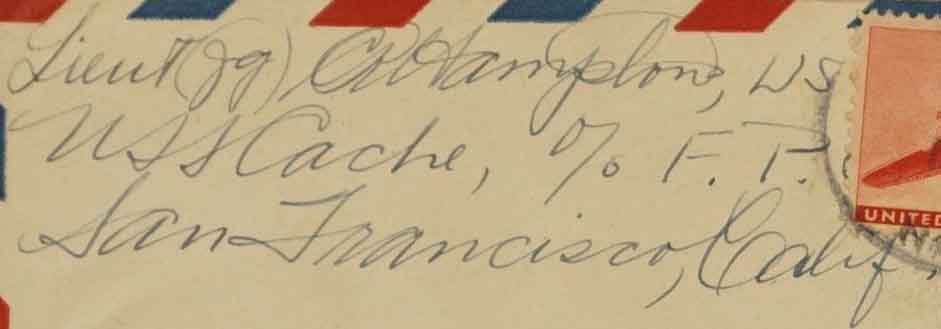 Lieut (jg) C R Hampton, US
USS Cache, c/o F. P.
San Francisco, Calif.
UNITED